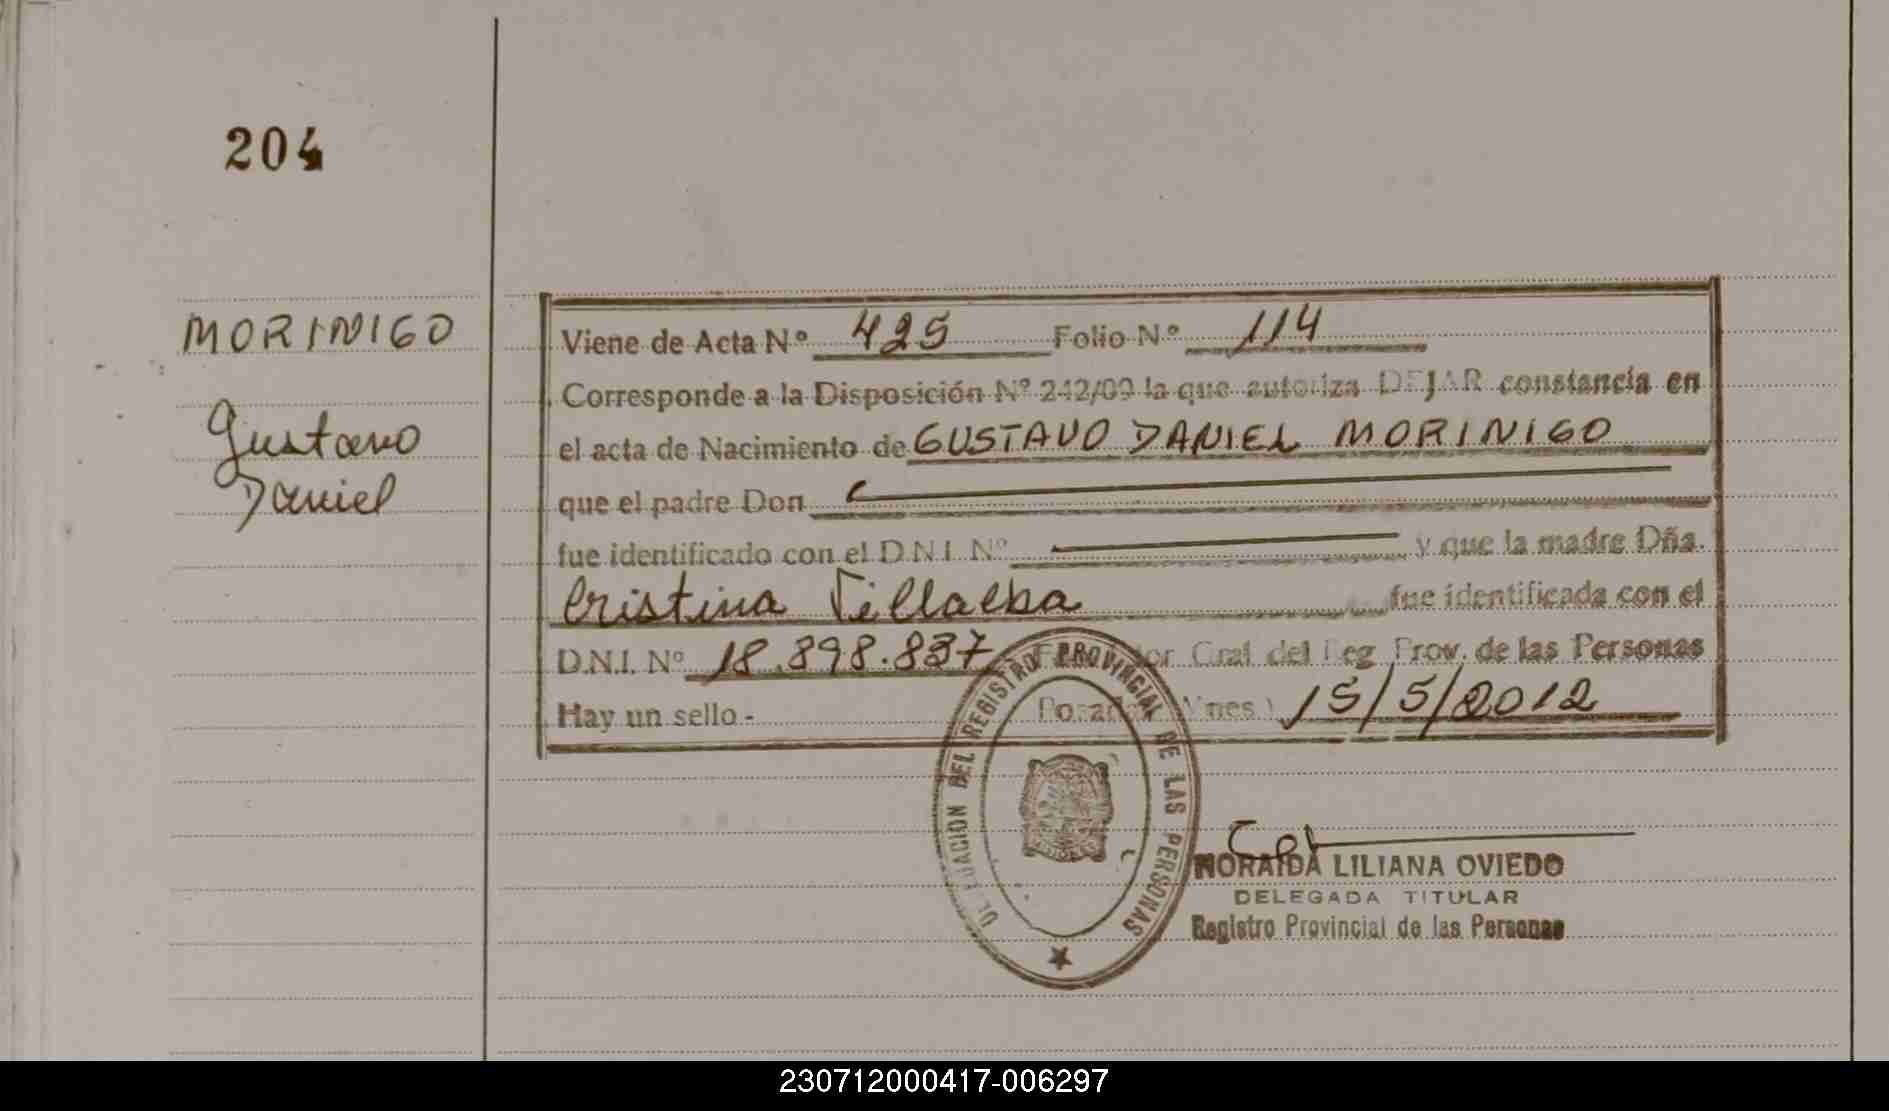 204
MORINIGO
Gustavo
Daniel
Viene de Acta Nº 425 Folio Nº 114
Corresponde a la Disposición Nº 242/09 la que autoriza DEJAR constancia en
el acta de Nacimiento de GUSTAVO DANIEL MORINIGO
que el padre Don
fue identificado con el D.N.I. Nº y que la madre Dña.
Cristina Villalba fue identificada con el
D.N.I. Nº 18.898.837 Gral del Reg Prov. de las Personas
Hay un sello.- 15/5/2012
DEL REGISTRO PROVINCIAL DE LAS PERSONAS
NORAIDA LILIANA OVIEDO
DELEGADA TITULAR
Registro Provincial de las Personas
230712000417-006297